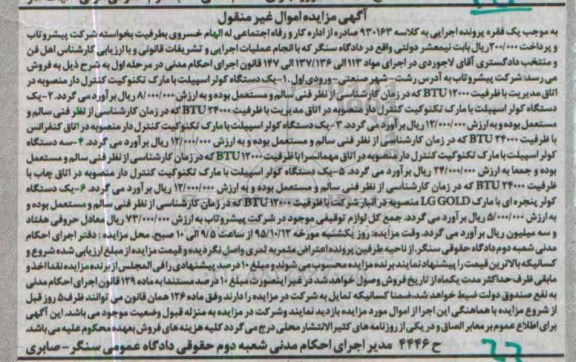 آگهی مزایده اموال غیر منقول
به موجب یک فقره پرونده اجرایی به کلاسه ۹۳۰۱۶۳ صادره از اداره کار و رفاه اجتماعی له الهام خسروی بطرفیت بخواسته شرکت پیشروتاب
و پرداخت ۲۰۰/۰۰۰ ریال بابت نیمعشر دولتی واقع در دادگاه سنگر که با انجام عملیات اجرایی و تشریفات قانونی و با ارزیابی کارشناس اهل فن
و منتخب دادگستری آقای لاجوردی در اجرای مواد ۱۱۳ الی ۱۳۷/۱۳۶ الی ۱۴۷ قانون اجرای احکام مدنی در مرحله اول به شرح ذیل به فروش
می رسد: شرکت پیشروتاب به آدرس رشت- شهر صنعتی- ورودی اول. ۱- یک دستگاه کولر اسپیلت با مارک تکنوکیت کنترل دار منصوبه در
اتاق مدیریت با ظرفیت BTU ۱۲۰۰۰ که در زمان کارشناسی از نظر فنی سالم و مستعمل بوده و به ارزش ۸/۰۰۰/۰۰۰ ریال برآورد می گردد. ۲- یک
دستگاه کولر اسپیلت با مارک تکنوکیت کنترل دار منصوبه در اتاق مدیریت با ظرفیت ۲۴۰۰۰ BTU که در زمان کارشناسی از نظر فنی سالم و
مستعمل بوده و به ارزش ۱۲/۰۰۰/۰۰۰ ریال برآورد می گردد. ۳- یک دستگاه کولر اسپیلت با مارک تکنوکیت کنترل دار منصوبه در اتاق کنفرانس
با ظرفیت ۲۴۰۰۰ BTU که در زمان کارشناسی از نظر فنی سالم و مستعمل بوده و به ارزش ۱۲/۰۰۰/۰۰۰ ریال برآورد می گردد. ۴- سه دستگاه
کولر اسپیلت با مارک تکنوکیت کنترل دار منصوبه در اتاق مهمانسرا با ظرفیت ۱۲۰۰۰ BTU که در زمان کارشناسی از نظر فنی سالم و مستعمل
بوده و جمعا به ارزش ۲۴/۰۰۰/۰۰۰ ریال برآورد می گردد. ۵- یک دستگاه کولر اسپیلت با مارک تکنوکیت کنترل دار منصوبه در اتاق چاب با
ظرفیت ۲۴۰۰۰ BTU که در زمان کارشناسی از نظر فنی سالم و مستعمل بوده و به ارزش ۱۲/۰۰۰/۰۰۰ ریال برآورد می گردد. ۶- یک دستگاه
کولر پنجره ای با مارک LG GOLD منصوبه در انبار شرکت با ظرفیت ۱۲۰۰۰ BTU که در زمان کارشناسی از نظر فنی سالم و مستعمل بوده و
به ارزش ۵/۰۰۰/۰۰۰ ریال برآورد می گردد. جمع کل لوازم توقیفی موجود در شرکت پیشروتاب به ارزش ۷۳/۰۰۰/۰۰۰ ریال معادل حروفی هفتاد
و سه میلیون ریال برآورد می گردد. وقت مزایده: روز یکشنبه مورخه ۹۵/۱۰/۱۲ از ساعت ۹/۵ الی ۱۰ صبح. محل مزایده: دفتر اجرای احکام
مدنی شعبه دوم دادگاه حقوقی سنگر. از ناحیه طرفین پرونده اعتراض مثمر به ثمری واصل نگردیده و قیمت مزایده از مبلغ ارزیابی شده شروع و
کسانیکه بالاترین قیمت را پیشنهاد نمایند برنده مزایده محسوب می شوند و مبلغ ۱۰ درصد پیشنهادی را فی المجلس از برنده مزایده نقدا اخذ و
مابقی ظرف حداکثر مدت یکماه از تاریخ فروش وصول خواهد شد در غیر اینصورت مبلغ ۱۰ درصد مستندا به ماده ۱۲۹ قانون اجرای احکام مدنی
به نفع صندوق دولت ضبط خواهد شد. ضمنا کسانیکه تمایل به شرکت در مزایده را دارند وفق ماده ۱۲۶ همان قانون می توانند ظرف ۵ روز قبل
از شروع مزایده با هماهنگی این اجرا از اموال مورد مزایده بازدید نمایند و شرکت در مزایده به منزله قبول وضعیت موجود می باشد. این آگهی
برای اطلاع عموم بر معابر الصاق و در یکی از روزنامه های کثیر الانتشار محلی درج می گردد کلیه هزینه های فروش بعهده محکوم علیه می باشد.
ح ۴۴۴۶ مدیر اجرای احکام مدنی شعبه دوم حقوقی دادگاه عمومی سنگر- صابری